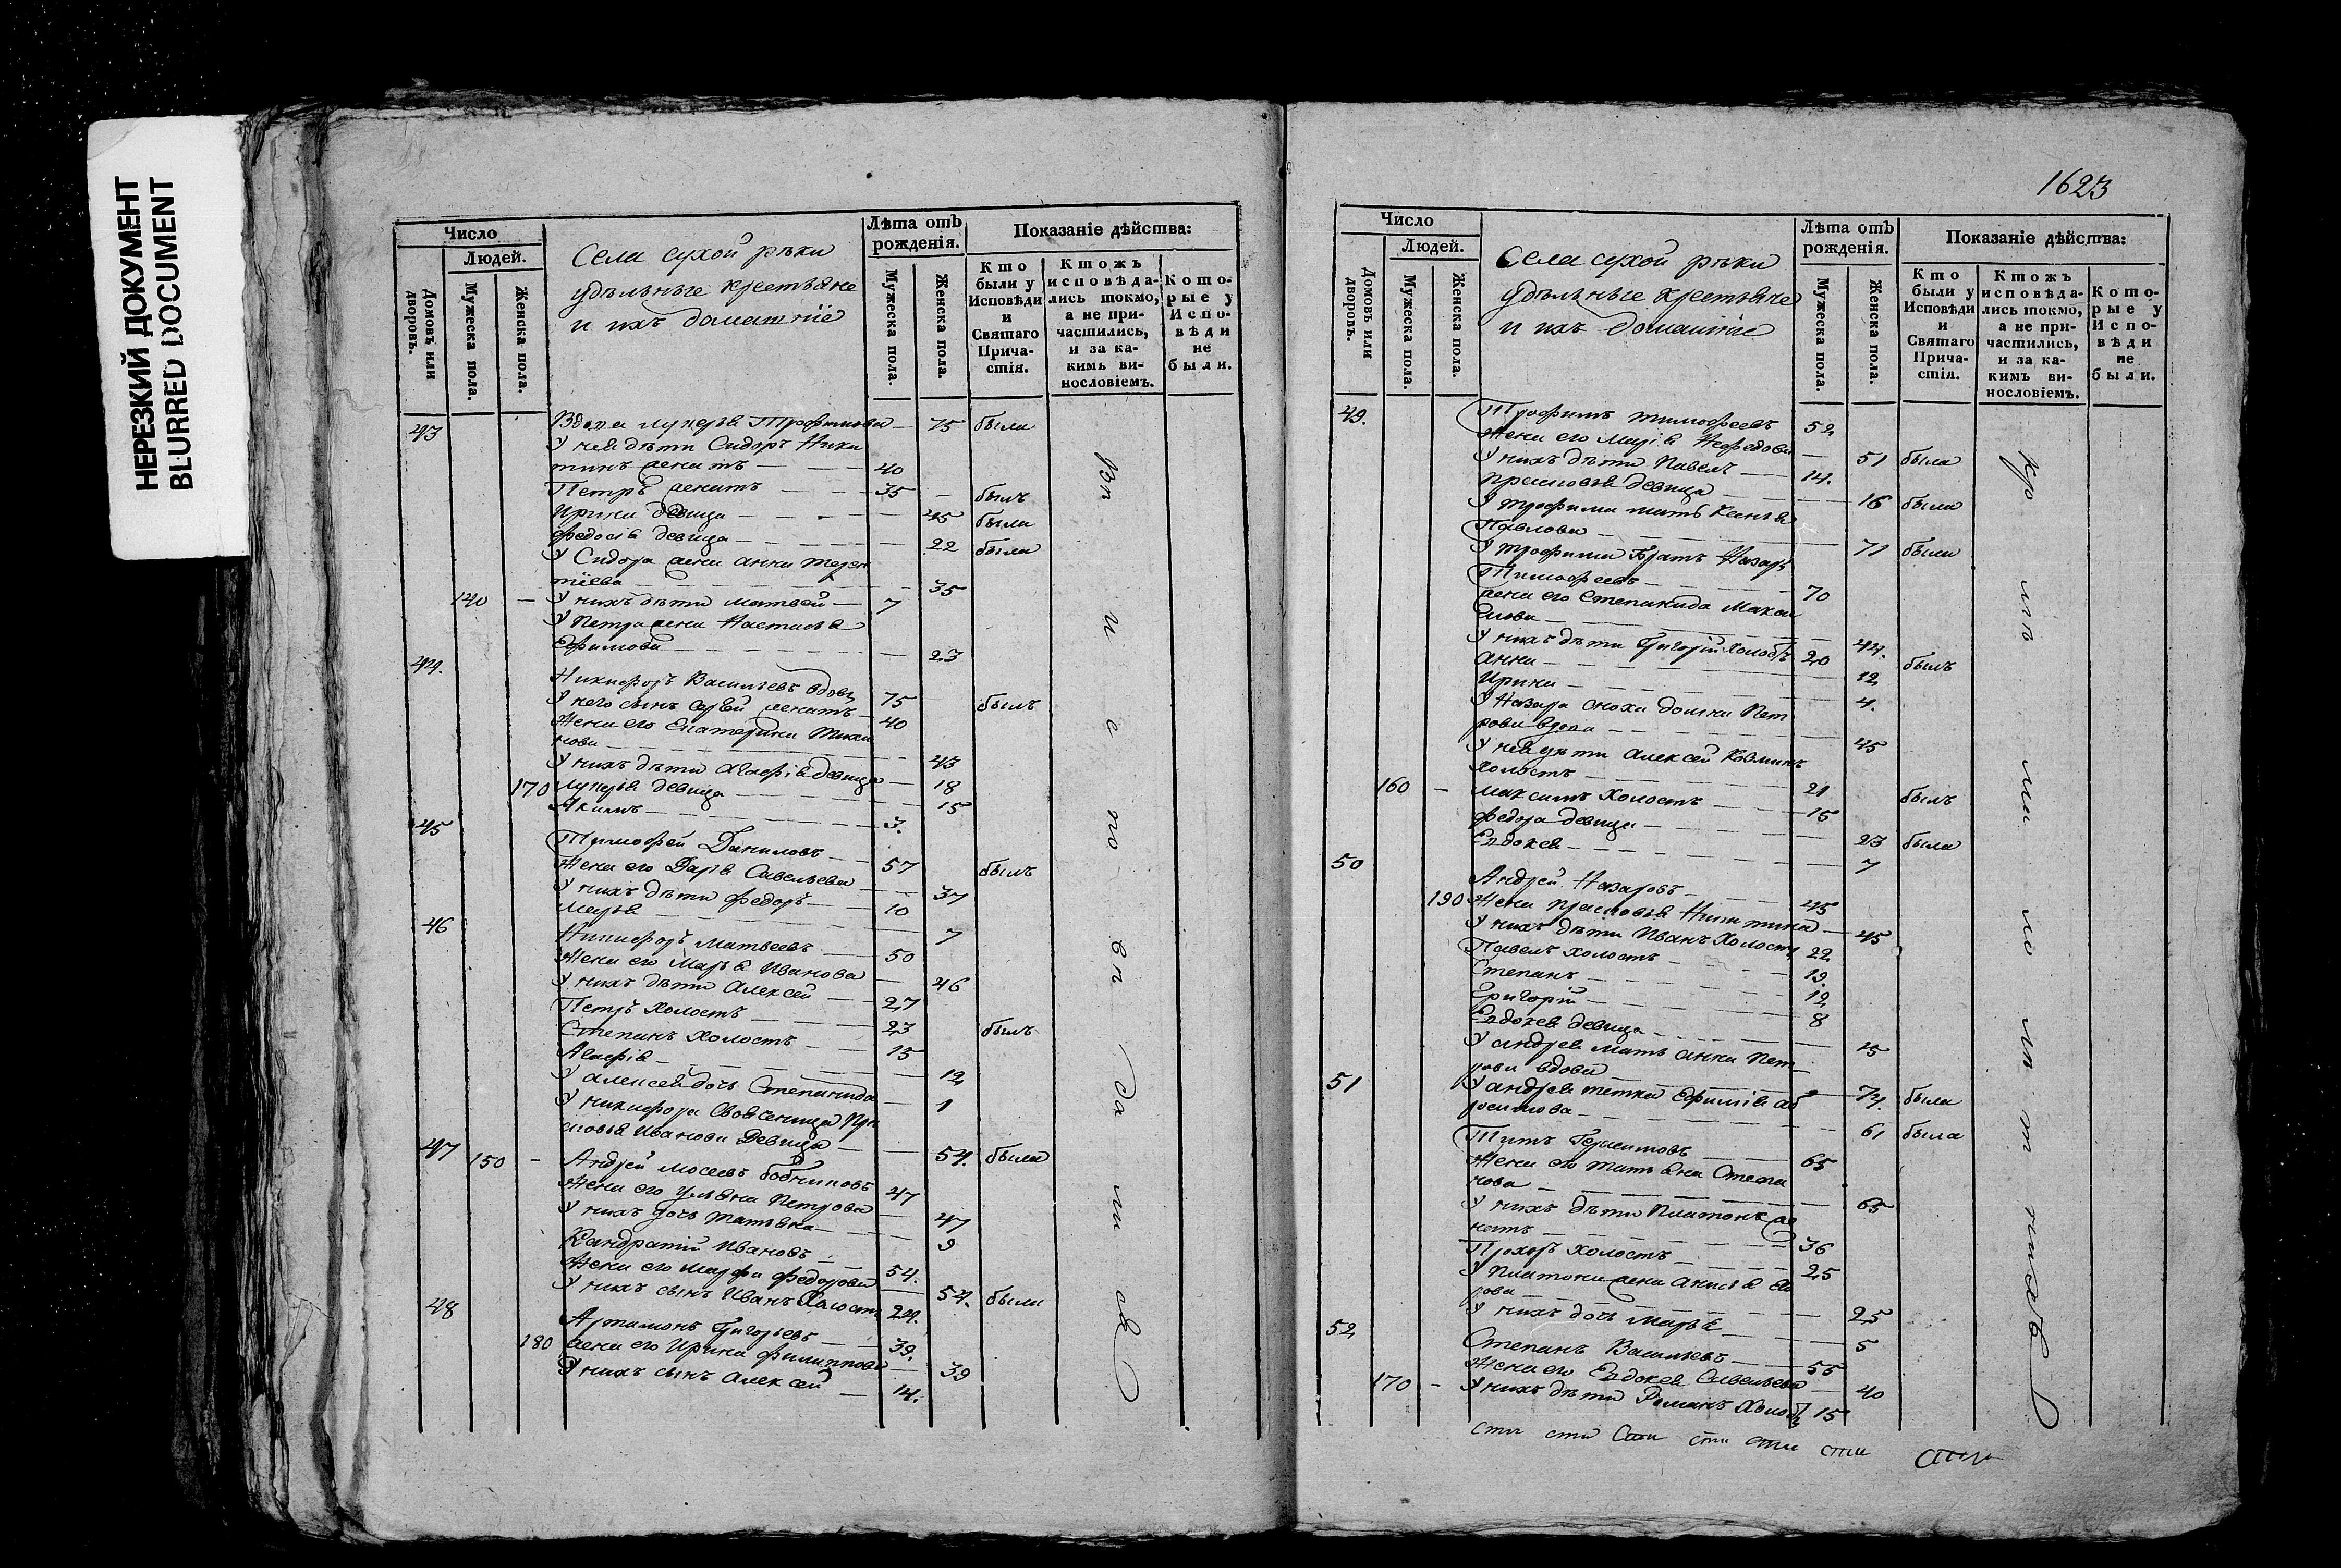 НЕРЕЗКИЙ ДОКУМЕНТ
BLURRED DOCUMENT
Число
Людей.
Домовъ или дворовъ.
Мужеска пола.
Женска пола.
Села сухой рѣки
удѣльныѣ крестьяне
и ихъ домашнїе
Лѣта отъ рожденія.
Мужеска пола.
Женска пола.
Показаніе дѣйства:
Кто были у Исповѣди и Святаго Причастія.
Ктожъ исповѣдались токмо, а не причастились, и за какимъ винословіемъ.
Которые у Исповѣди не были.
43 Вдова Лукерья Трофимова 75 была
У нея дѣти Сидоръ Ники
тинъ женатъ 40
Петръ женатъ 35 былъ
Ирина девица 45 была
Федосья девица 22 была
У Сидора жена анна Терен
тїева 35
140 У нихъ дѣти матвей 7
У Петра жена Настасья
Ефимова 23
44. Никифоръ Васильевъ вдовъ 75 былъ
У него сынъ женатъ 40
Жена его Екатерина
нова 43
У нихъ дѣти Агафія девица 18
170 Лукерья девица 15
Акимъ 3.
45 Тимофей Даниловъ 57 былъ
Жена его Дарья Савельева 37
У нихъ дѣти федоръ 10
Марья 7
46 Никифоръ Матвеевъ 50
Жена его Марья Иванова 46
У нихъ дѣти Алексей 27
Петръ Холостъ 23 былъ
Степанъ Холостъ 15
Агафія 12
У алексея дочь Степанида 1
У никифора Свояченица Пра
сковья Иванова Девица 54. была
47 150 Андрей Мосеевъ 47
Жена его Ульяна Петрова 47
У нихъ дочь Татьяна 9
Кандратій Ивановъ 54.
Жена его марфа федорова 54. была
У нихъ сынъ Иванъ Холостъ 24.
48 Артамонъ Григорьевъ 39.
180 жена его Ирина филиппова 39
У нихъ сынъ алексей 14.
1623
Число
Людей.
Домовъ или дворовъ.
Мужеска пола.
Женска пола.
Села сухой рѣки
удѣльные крестьяне
и ихъ домашнїе
Лѣта отъ рожденія.
Мужеска пола.
Женска пола.
Показаніе дѣйства:
Кто были у Исповѣди и Святаго Причастія.
Ктожъ исповѣдались токмо, а не причастились, и за какимъ винословіемъ.
Которые у Исповѣди не были.
49. Трофимъ тимофеевъ 52
Жена его Марія Нефедова 51 была
У нихъ дѣти Павелъ 14.
прасковья девица 16 была
У трофима мать Ксенья
Павлова 71 была
У трофима братъ Назаръ
Тимофеевъ 70
жена его Степанида
44.
У нихъ дѣти Григорій холостъ 20 былъ
Анна 12
Ирина 4.
У Назара сноха домна Пет
рова вдова 45
У ней дѣти алексей Козминъ
холостъ 21
160 максимъ Холостъ 15 былъ
федора девица 23 была
Евдокея 7
50 Андрей Назаровъ 45
190 Жена прасковья Никитина 45
У нихъ дѣти Иванъ Холостъ 22
Павелъ холостъ 19.
Степанъ 12
Григорій 8
Евдокея девица 15
У андрея мать анна Пет
рова вдова 74. была
У андрея тетка Ефимія аб
росимова 61 была
51 Титъ Герасимовъ 65
Жена его татьяна Степа
нова 65
У нихъ дѣти Платонъ же
натъ 36
Прохоръ холостъ 25
У Платона жена анисья
25
У нихъ дочь Марья 5
52 Степанъ Васильевъ 55
Жена его Евдокея Савельева 40
170 У нихъ дѣти Романъ Холостъ 15
сти сти сти сти сти сти